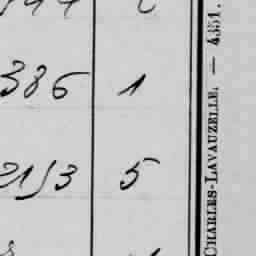 386 1
2153 5
CHARLES-LAVAUZELLE. — 4351.